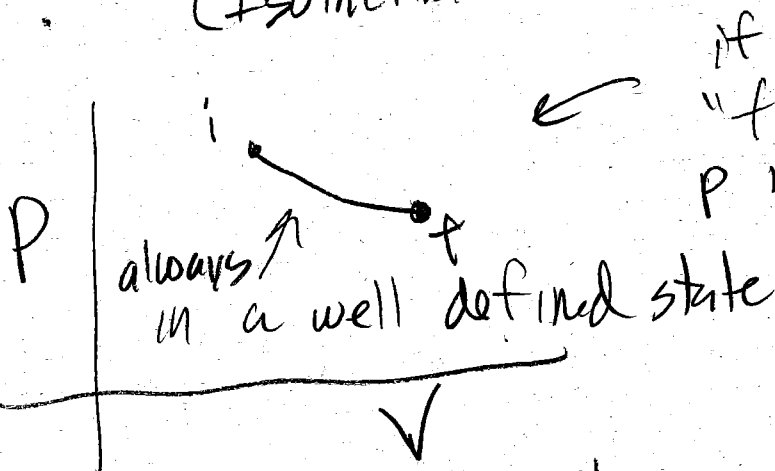 if
i
"f
P
P
f
always
in a well defined state
V